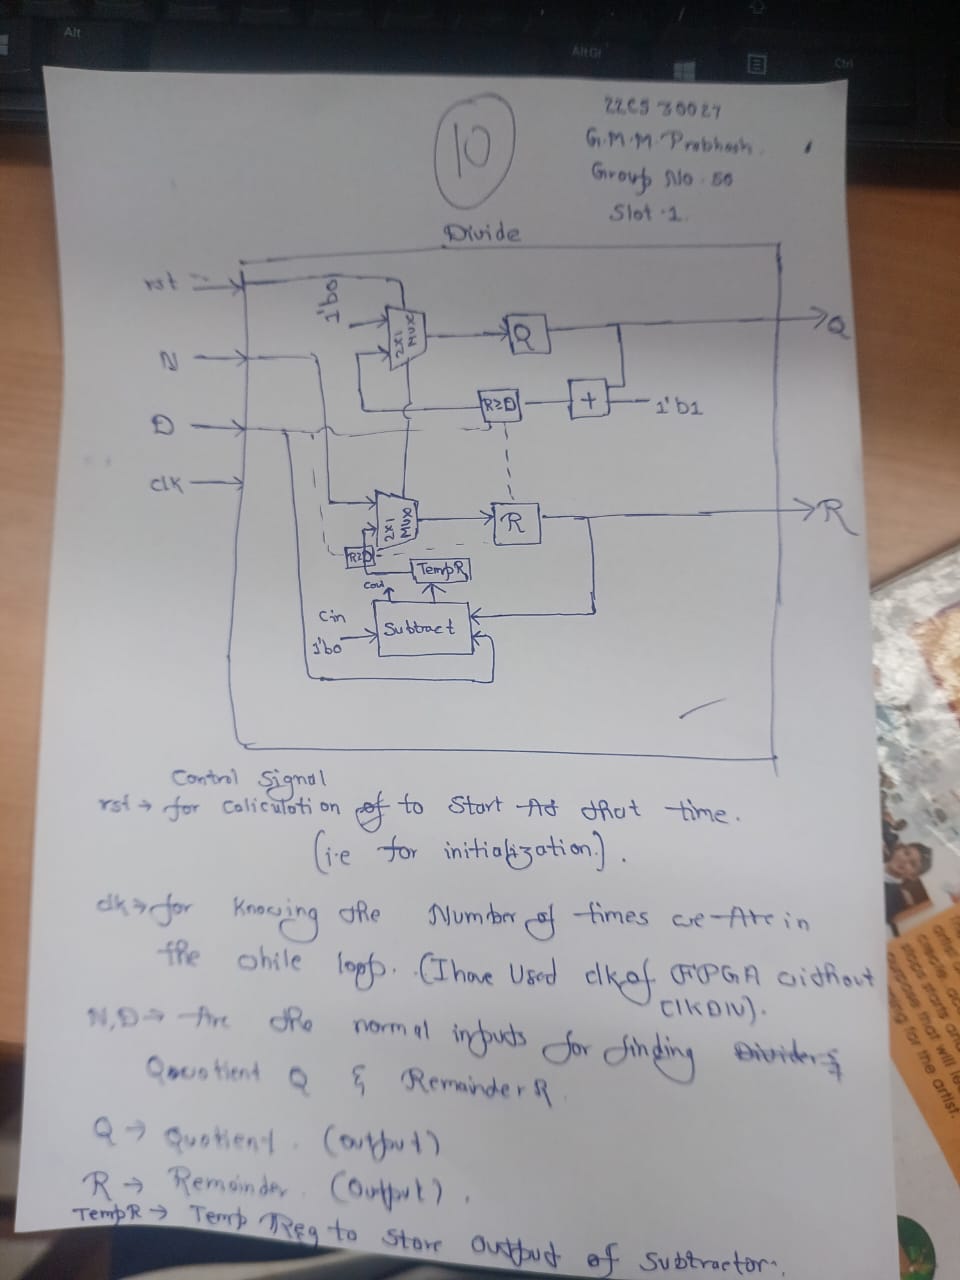 Alt
Alt Gr
Ctrl
10
22CS30027
G.M.M. Prabhash.
Group No. 50
Slot -1.
Divide
rst
1'b0
2x1 MUX
Q
Q
N
R≥D
+
1'b1
D
clk
2x1 MUX
R
R
R≥D
TempR
Cout
Cin
Subtract
1'b0
Control Signal
rst → for caliculation to Start At that time.
(i.e for initialization).
clk → for Knowing the Number of times we Are in
the while loop. (I have Used clk of FPGA without
ClKDIV).
N,D → Are the normal inputs for finding
Quotient Q & Remainder R
Q → Quotient. (output)
R → Remainder. (Output).
TempR → Temp Reg to Store output of Subtractor.